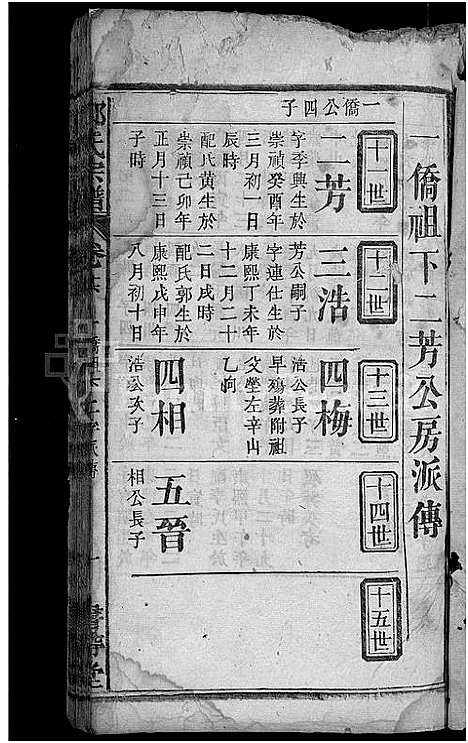 一僑祖下二芳公房派傳
十一世
一僑公四子
二芳
字季興生於
崇禎癸酉年
三月初一日
辰時
配氏黃生於
崇禎己卯年
正月十三日
子時
十二世
三浩
芳公嗣子
字連仕生於
康熙丁未年
十二月二十
二日戌時
配氏郭生於
康熙戊申年
八月初十日
十三世
四梅
浩公長子
早殤葬附祖
父塋左辛山
乙向
四相
浩公次子
十四世
五晉
相公長子
十五世
氏宗譜